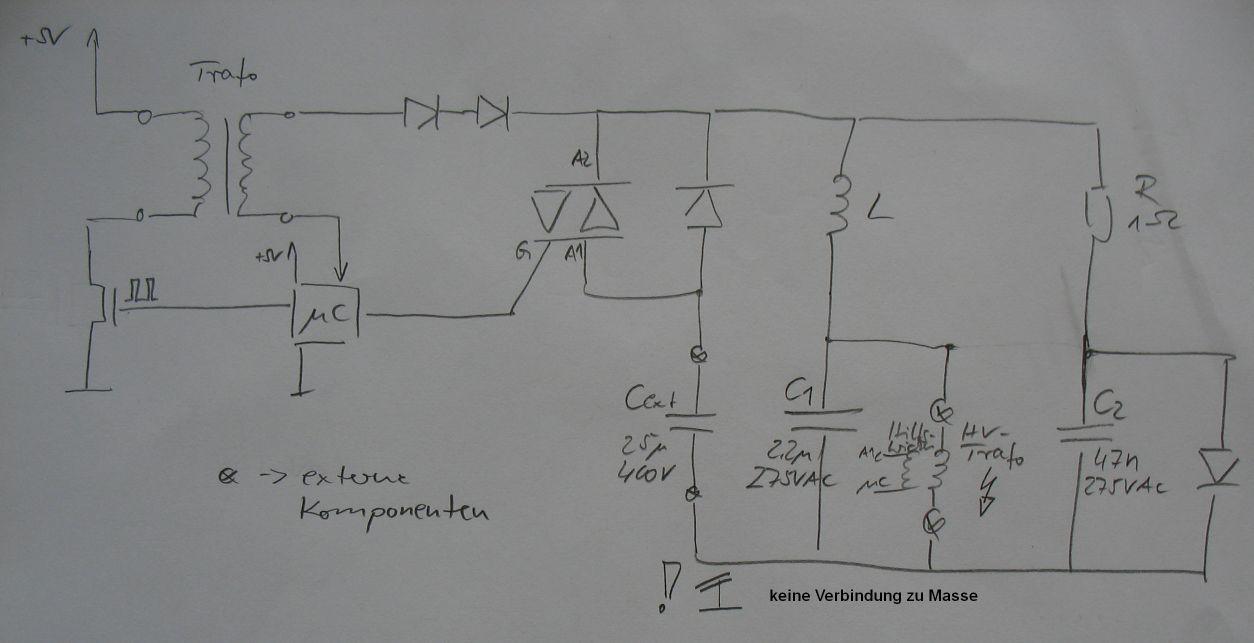 +5V
Trafo
A2
R
1Ω
L
G
A1
+5V
µC
Cext
25µ
400V
C1
2,2µ
275VAC
Hilfs-
HV-
Trafo
µC
C2
47n
275VAC
⊗ -> externe
Komponenten
!
keine Verbindung zu Masse